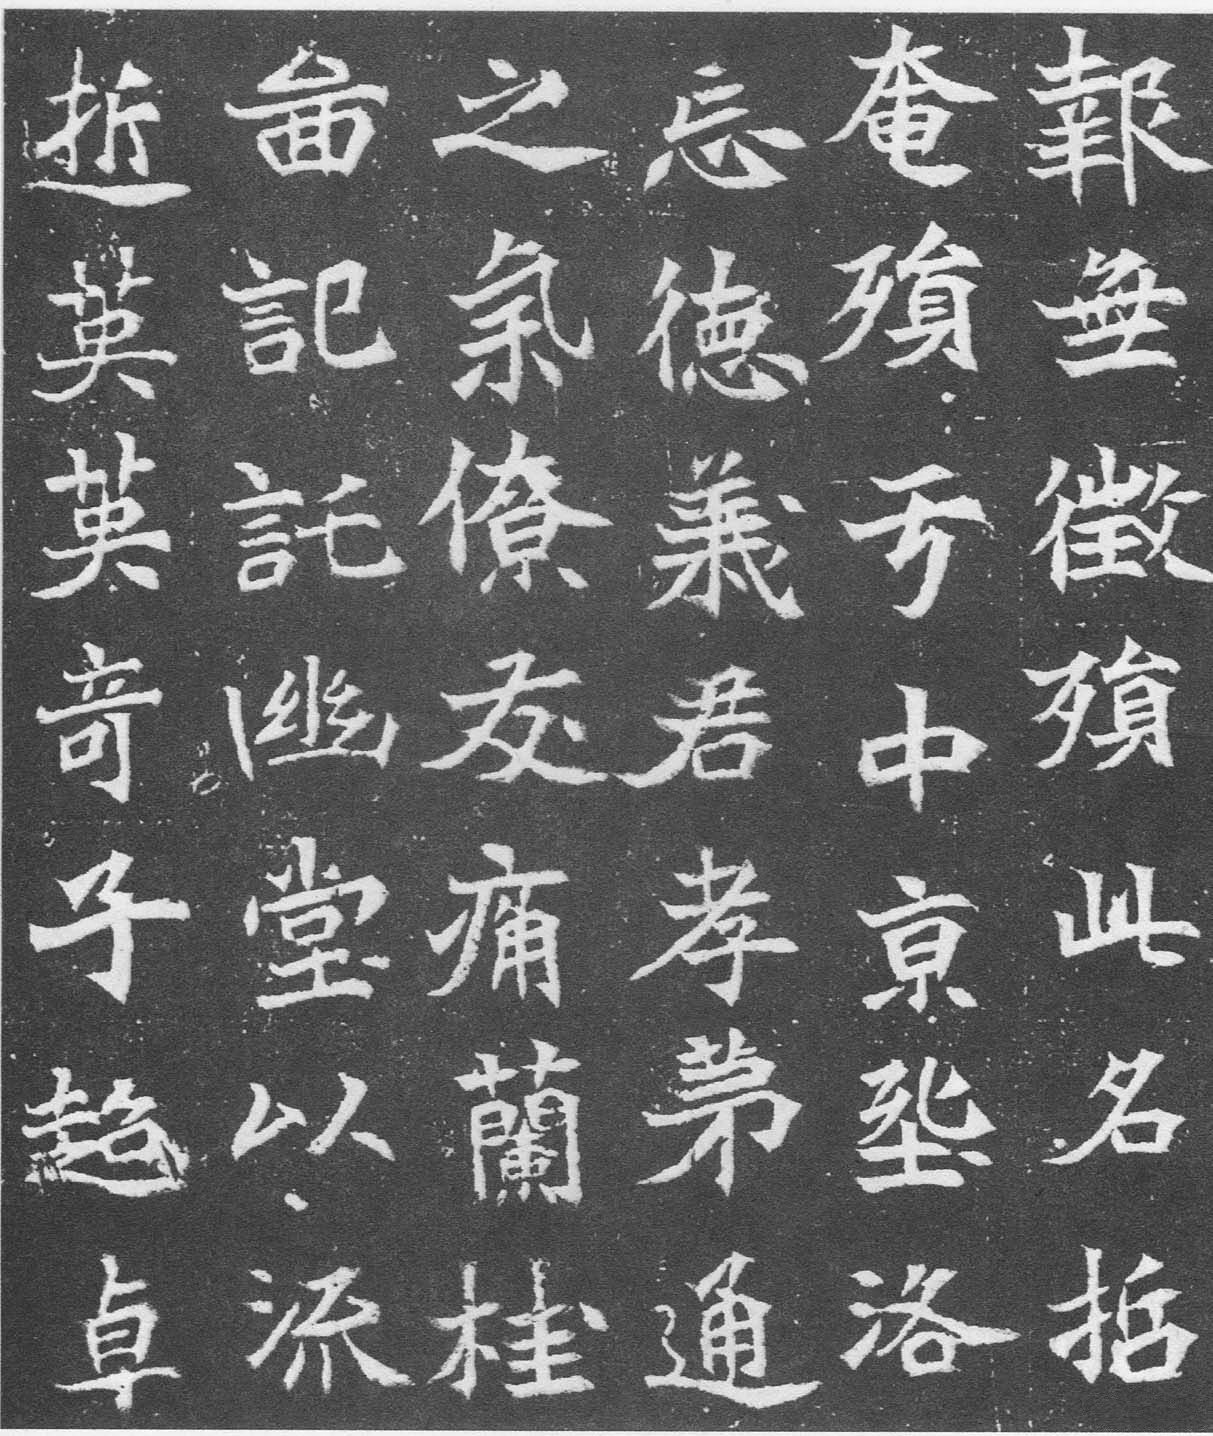 報無徵殞此名哲
奄殞于中亰洛
忘德義君孝苐通
之氣僚友痛蘭桂
啚記託幽堂以流
逝英英奇子超卓